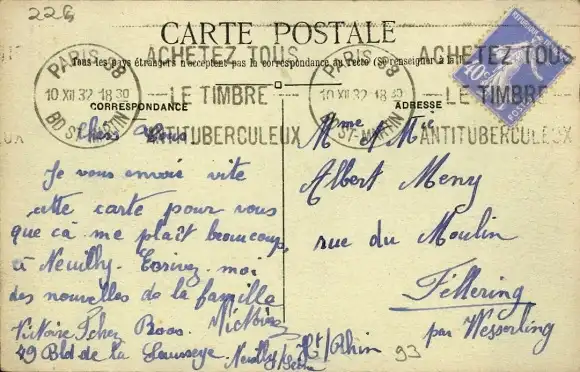 226
CARTE POSTALE
Tous les pays étrangers n'acceptent pas la correspondance au recto (Se renseigner à la
PARIS 98
10 XII 32 18 30
BD ST-MARTIN
ACHETEZ TOUS
LE TIMBRE
ANTITUBERCULEUX
PARIS 98
10 XII 32 18 30
BD ST-MARTIN
ACHETEZ TOUS
LE TIMBRE
ANTITUBERCULEUX
CORRESPONDANCE
Chers Vous
Je vous envoie vite
cette carte pour vous
que cà me plaît beaucoup
à Neuilly. Ecrivez-moi
des nouvelles de la famille
Victoire
Victoire chez Boos.
49 Bld de la Saussaye. Neuilly s/Seine
ADRESSE
Mme et Mr
Albert Meny
rue du Moulin
Fellering
par Wesserling
Ht/Rhin
93
40c